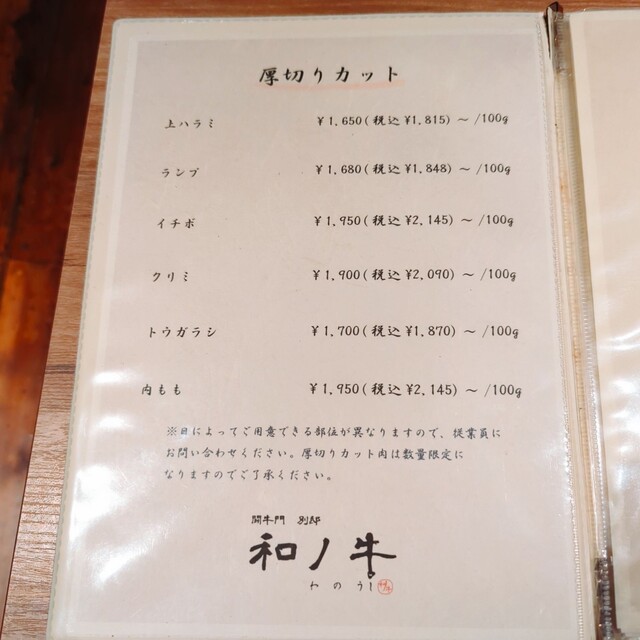 厚切りカット
上ハラミ ¥1,650(税込¥1,815) ～ /100g
ランプ ¥1,680(税込¥1,848) ～ /100g
イチボ ¥1,950(税込¥2,145) ～ /100g
クリミ ¥1,900(税込¥2,090) ～ /100g
トウガラシ ¥1,700(税込¥1,870) ～ /100g
内もも ¥1,950(税込¥2,145) ～ /100g
※日によってご用意できる部位が異なりますので、従業員に
お問い合わせください。厚切りカット肉は数量限定に
なりますのでご了承ください。
闘牛門 別邸
和ノ牛
わのうし